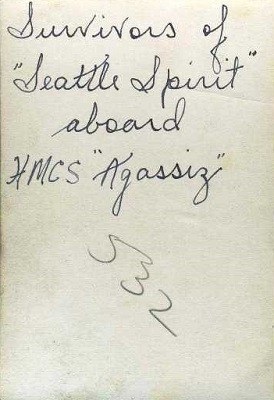 Survivors of
"Seattle Spirit"
aboard
HMCS "Agassiz"